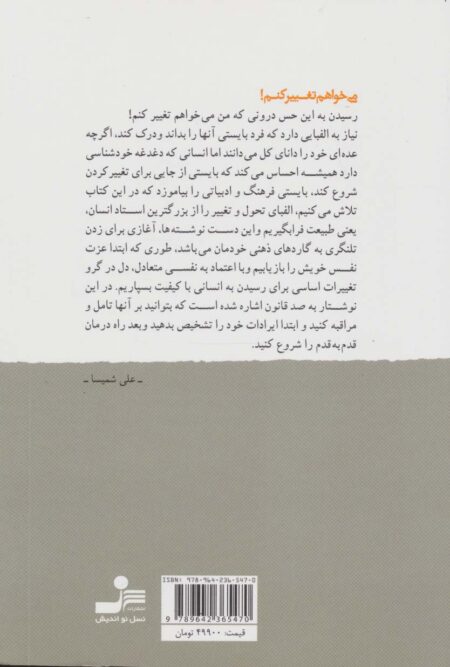 می‌خواهم تغییر کنم!
رسیدن به این حس درونی که من می‌خواهم تغییر کنم!
نیاز به الفبایی دارد که فرد بایستی آنها را بداند ودرک کند، اگرچه
عده‌ای خود را دانای کل می‌دانند اما انسانی که دغدغه خودشناسی
دارد همیشه احساس می‌کند که بایستی از جایی برای تغییر کردن
شروع کند، بایستی فرهنگ و ادبیاتی را بیاموزد که در این کتاب
تلاش می‌کنیم، الفبای تحول و تغییر را از بزرگترین استاد انسان،
یعنی طبیعت فرابگیریم و این دست نوشته‌ها، آغازی برای زدن
تلنگری به گاردهای ذهنی خودمان می‌باشد، طوری که ابتدا عزت
نفس خویش را بازیابیم وبا اعتماد به نفسی متعادل، دل در گرو
تغییرات اساسی برای رسیدن به انسانی با کیفیت بسپاریم. در این
نوشتار به صد قانون اشاره شده است که بتوانید بر آنها تامل و
مراقبه کنید و ابتدا ایرادات خود را تشخیص بدهید وبعد راه درمان
قدم‌به‌قدم را شروع کنید.
ـ علی شمیسا ـ
ISBN: 978-964-236-547-0
9 789642 365470
قیمت: ۴۹۹۰۰ تومان
انتشارات
نسل نو اندیش